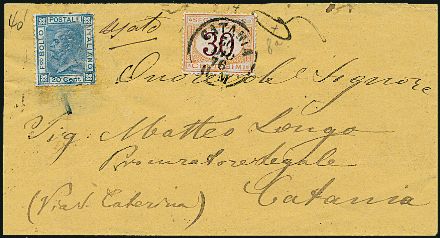 BOLLO POSTALE ITALIANO
20 CENT.
30
CATANIA
76
Usato
Onorevole Signore
Sig. Matteo Longo
Procuratore legale
(Via S. Caterina) Catania